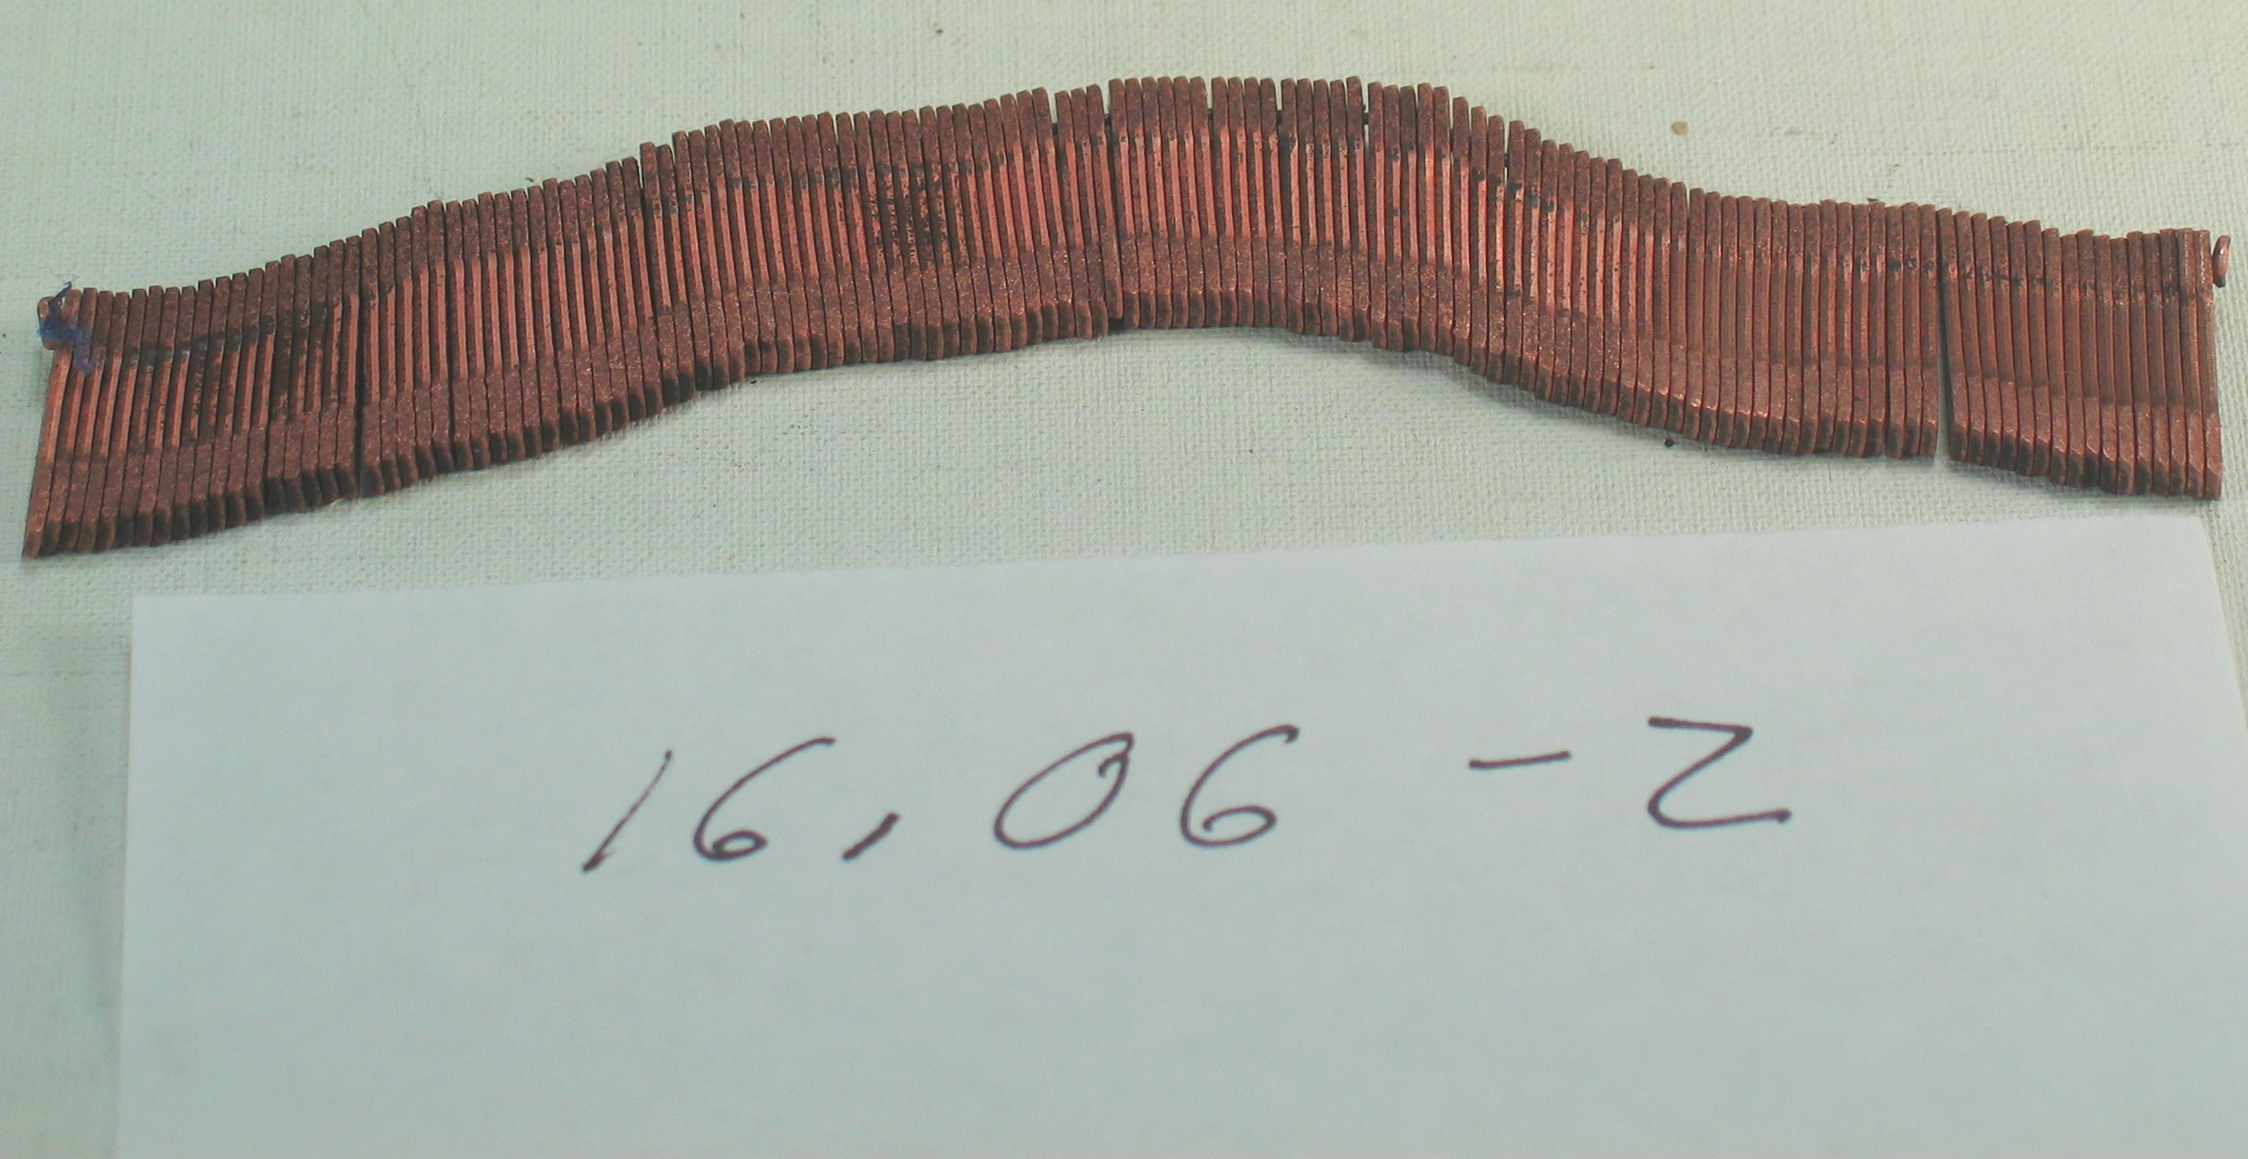 16,06 - 2